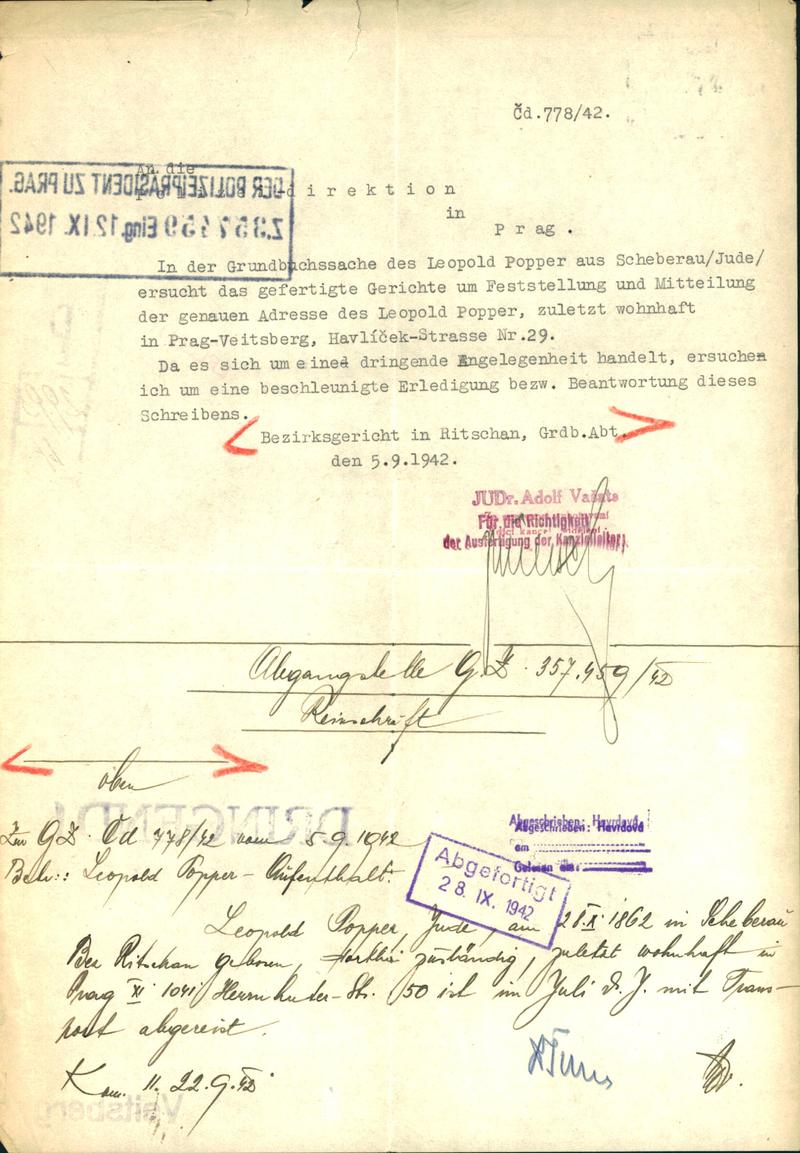 Čd.778/42.
An die
direktion
in
Prag.
DER POLIZEIPRÄSIDENT ZU PRAG.
Z. 357459 Eing. 12. IX. 1942
In der Grundbuchssache des Leopold Popper aus Scheberau/Jude/
ersucht das gefertigte Gerichte um Feststellung und Mitteilung
der genauen Adresse des Leopold Popper, zuletzt wohnhaft
in Prag-Veitsberg, Havlíček-Strasse Nr.29.
Da es sich um eined dringende Angelegenheit handelt, ersuchen
ich um eine beschleunigte Erledigung bezw. Beantwortung dieses
Schreibens.
Bezirksgericht in Ritschan, Grdb.Abt.
den 5.9.1942.
JUDr. Adolf
Für die Richtigkeit
der Ausfertigung der Kanzleileiter:
Abgangstelle G.Z. 357.459/42
Reinschrift
oben
DRINGEND!
Zur GZ. Čd 778/42 vom 5.9.1942
Betr.: Leopold Popper - Aufenthalt.
Abgeschrieben: Havrdová
Abgeschrieben: Havrdová
am
Gelesen
Abgefertigt
28. IX. 1942
Leopold Popper, Jude, am 28.XI.1862 in Scheberau
Bez Ritschan geboren, dorthin zuständig, zuletzt wohnhaft in
Prag XI 1041 Herrnhuter-Str. 50 ist im Juli d.J. mit Trans-
port abgereist.
22.9.42
Veitsberg